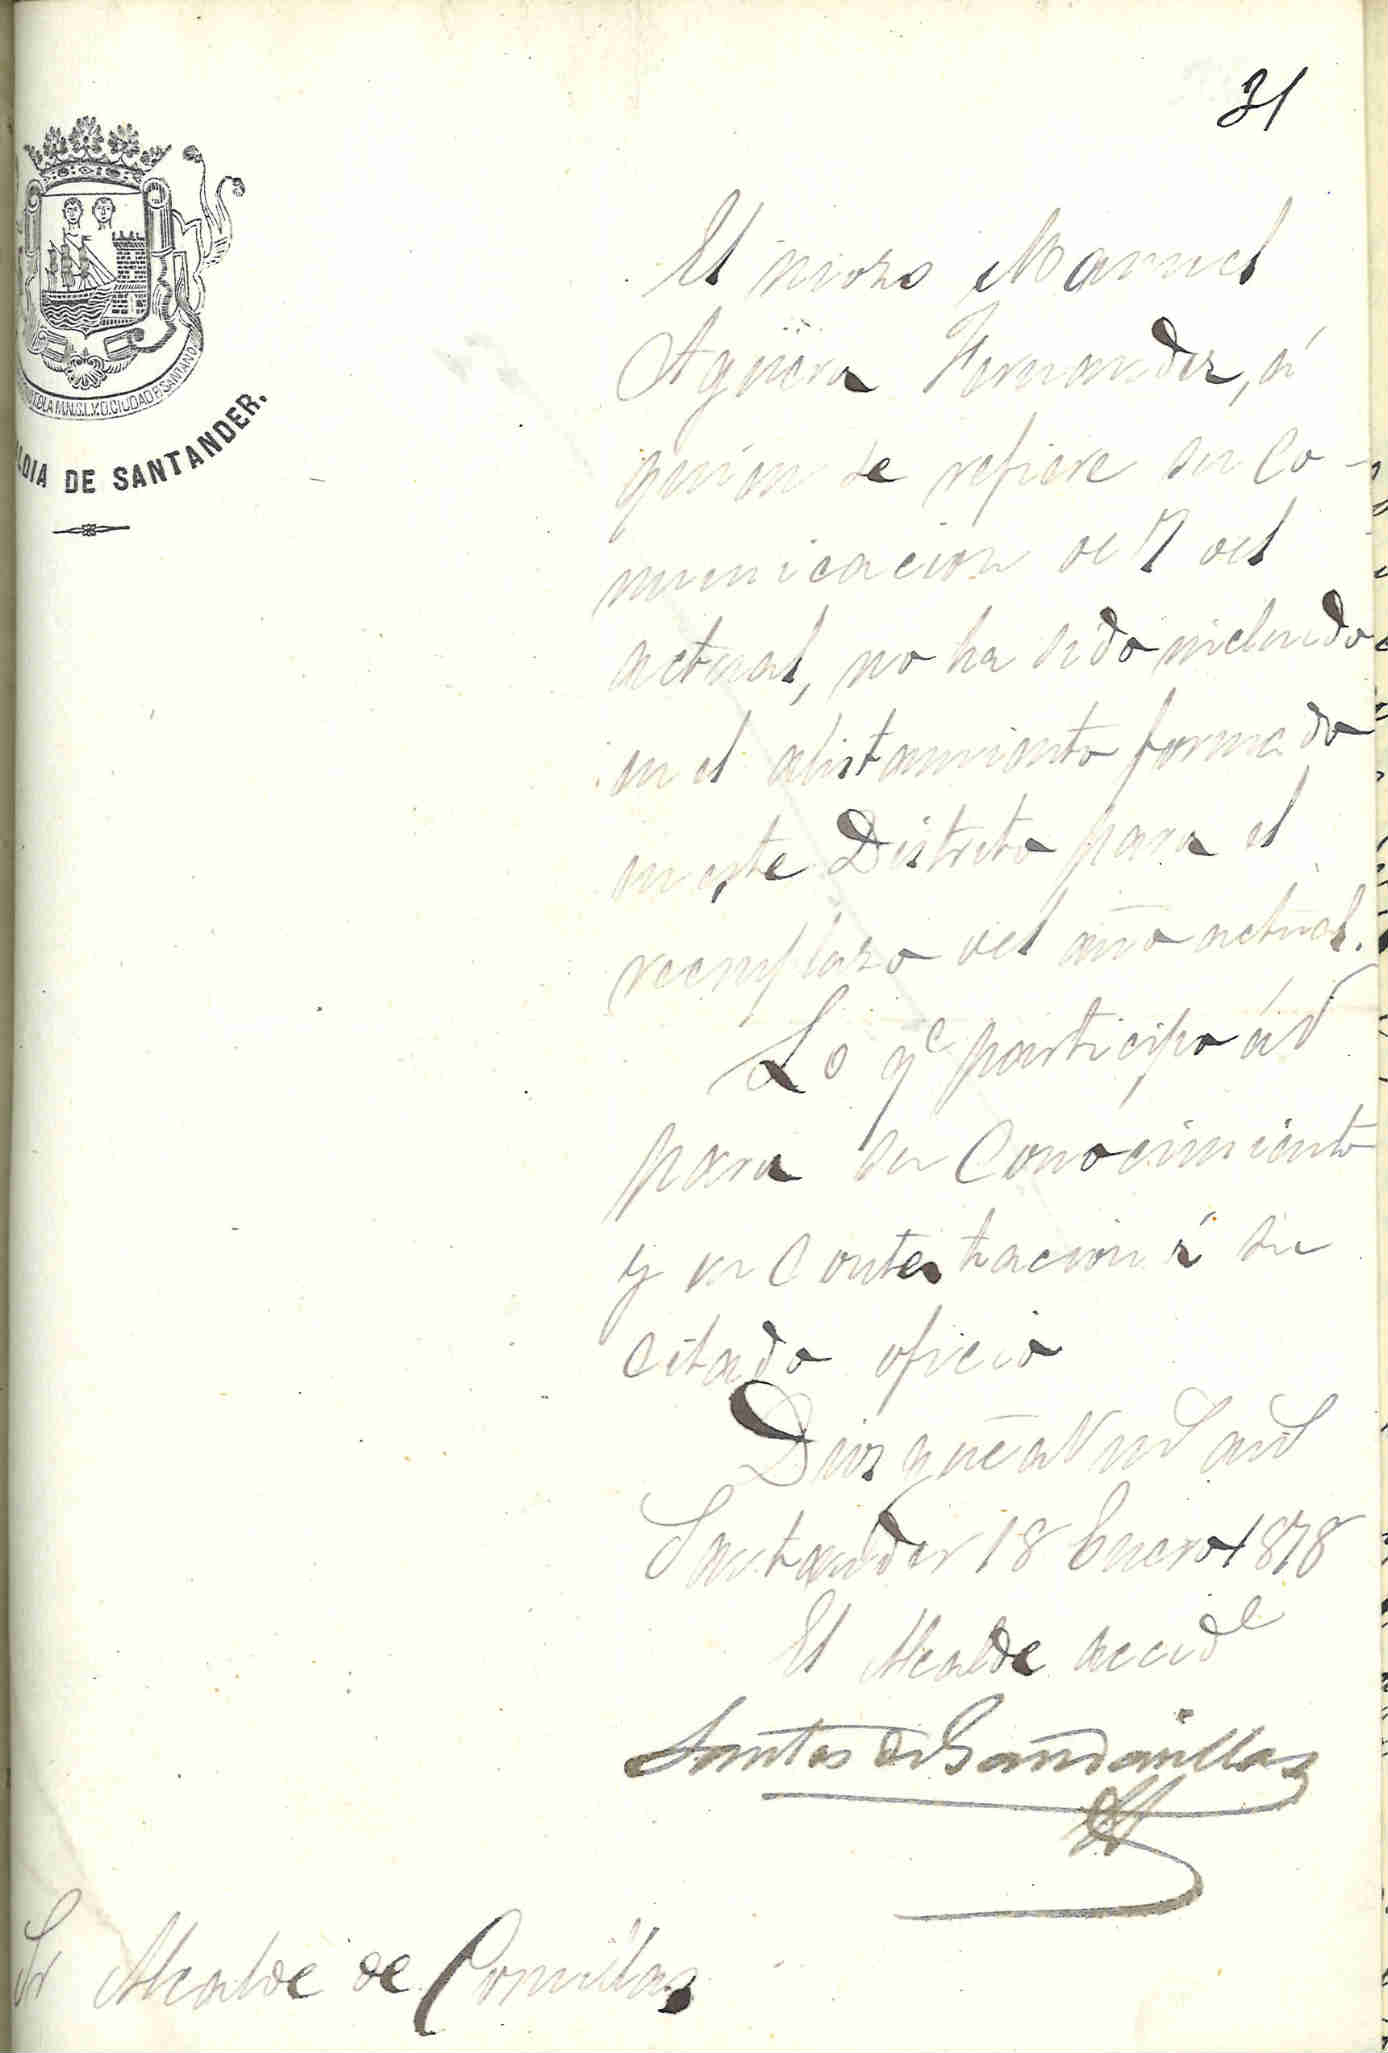 31
LDIA DE SANTANDER.
El mozo Manuel
Agüera Fernandez, á
quien se refiere su co-
municacion de 7 del
actual, no ha sido incluido
en el alistamiento formado
en este Distrito para el
reemplazo del año actual.
Lo qe participo á V
para su conocimiento
y en contestacion á su
citado oficio
Dios gue a V ms as
Santander 18 Enero 1878
El Alcalde accidl
Santos de Gandarillas
Sr Alcalde de Comillas